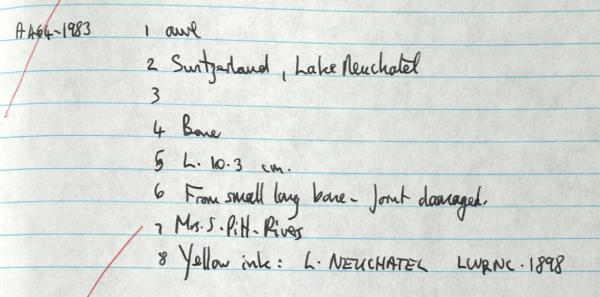 A464-1983 1 awl
2 Switzerland, Lake Neuchatel
3
4 Bone
5 L. 10.3 cm.
6 From small long bone - Joint damaged.
7 Mrs. S. Pitt-Rivers
8 Yellow ink: L. NEUCHATEL LWRNC. 1898